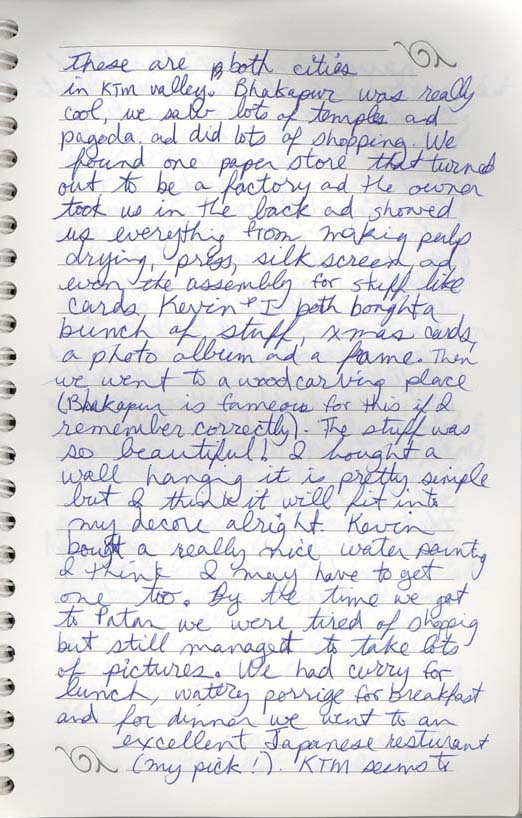 These are both cities
in KTM valley. Bhakapur was really
cool, we saw lots of temples ad
pagoda. ad did lots of shopping. We
found one paper store that turned
out to be a factory ad the owner
took us in the back ad showed
us everything from making pulp
drying, press, silk screen ad
even the assembly for stuff like
cards. Kevin + I both bought a
bunch of stuff, xmas cards,
a photo album ad a frame. Then
we went to a woodcarving place
(Bhakapur is fameous for this if I
remember correctly). The stuff was
so beautiful! I bought a
wall hanging it is pretty simple
but I think it will fit into
my decore alright. Kevin
bought a really nice water painting
I think I may have to get
one too. By the time we got
to Patan we were tired of shopping
but still managed to take lots
of pictures. We had curry for
lunch, watery porrige for breakfast
and for dinner we went to an
excellent Japanese resturant
(my pick!). KTM seems to